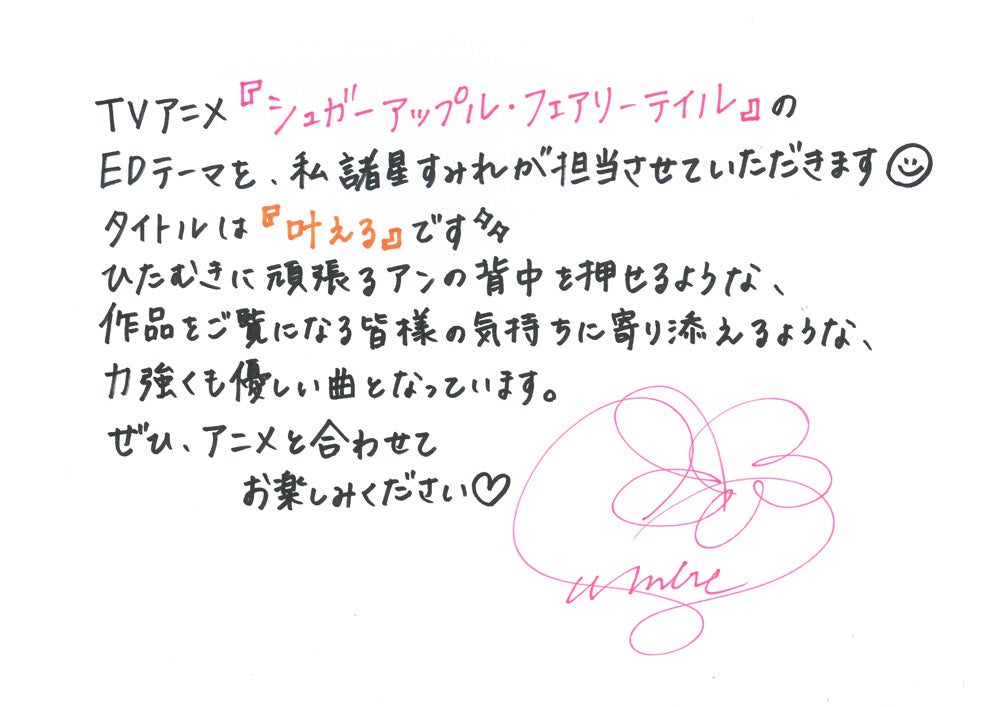 TVアニメ『シュガーアップル・フェアリーテイル』の
EDテーマを、私諸星すみれが担当させていただきます☺
タイトルは『叶える』です
ひたむきに頑張るアンの背中を押せるような、
作品をご覧になる皆様の気持ちに寄り添えるような、
力強くも優しい曲となっています。
ぜひ、アニメと合わせて
お楽しみください♡